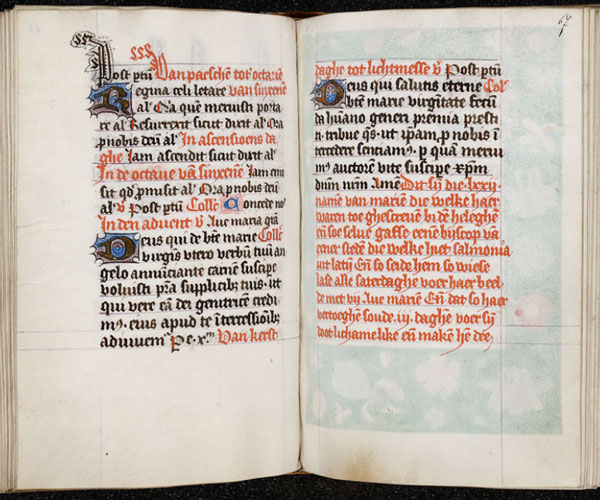 Post ptū Van paeschē tot octauē
Regina celi letare van sinxenē
al' Qa quē meruisti porta
re al' Resurrexit sicut dixit al' Ora
p nobis deū al' In ascensioens da
ghe Iam ascendit sicut dixit al'
In de octaue vā sinxenē Iam emi
sit qd̄ pmisit al' Ora p nobis deū
al' v̄ Post ptū Coll̄e Concede nos
In den aduent v̄ Aue maria grā
Deus qui de btē marie Coll̄e
virgīs vtero verbū tuū an
gelo annūciante carnē suscipe
voluisti pr̄a supplicib; tuis . ut
qui vere eā dei genitricē credi
m9 . eius apud te ītercessiōib;
adiuuem̄ Pe . x̄m Van kerst
67
daghe tot lichtmesse v̄ Post ptū
Deus qui salutis eterne Coll̄
btē marie virgītate fecūda
da hūano generi premia presti
ti . tribue q̄s . ut ipam . p nobis ī
tercedere senciam9 . p quā merui
m9 auctorē vite suscipe xp̄m
dnm̄ nr̄m Amē Dit sȳ die lxxij
namē van mariē die welke haer
waren toe ghescreuē bi dē heleghē
en̄ soe seluē gaffe eenē byscop vā
eener stede die welke hiet salmonia
int latȳ En̄ so seide hem so wiese
lase alle saterdaghe voer haer beel
de met vij . Aue mariē En̄ dat so haer
vertoeghē soude . iij . daghe voer sȳ
doot lichamelike en̄ makē hē dee